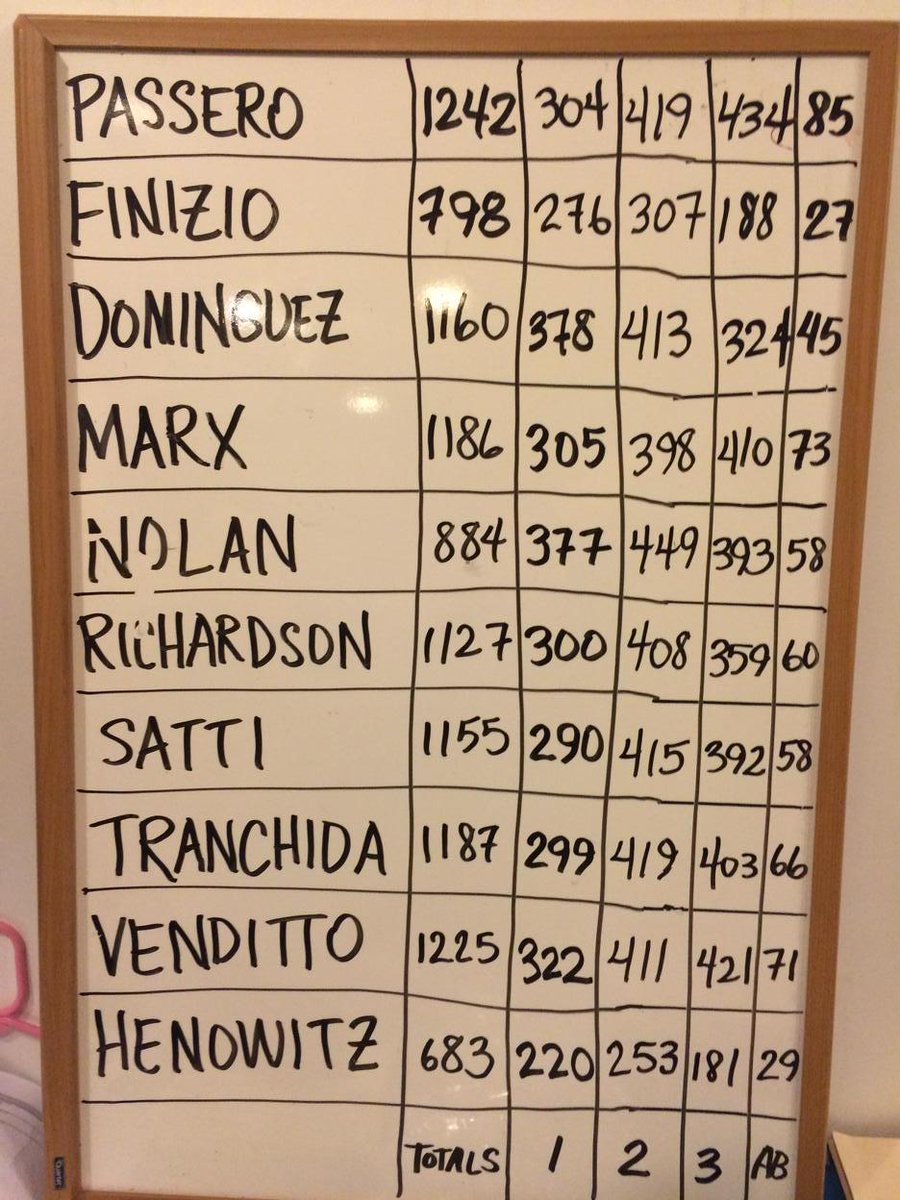 PASSERO 1242 304 419 434 85
FINIZIO 798 276 307 188 27
DOMINGUEZ 1160 378 413 324 45
MARX 1186 305 398 410 73
NOLAN 884 377 449 393 58
RICHARDSON 1127 300 408 359 60
SATTI 1155 290 415 392 58
TRANCHIDA 1187 299 419 403 66
VENDITTO 1225 322 411 421 71
HENOWITZ 683 220 253 181 29
TOTALS 1 2 3 AB
Quartet